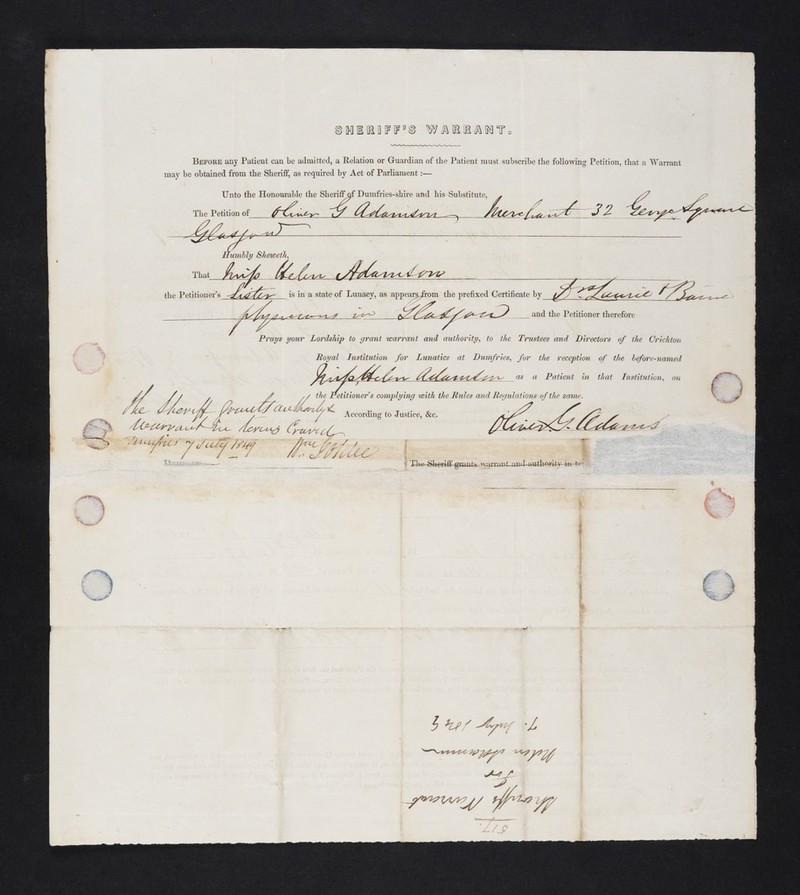 SHERIFF'S WARRANT.
BEFORE any Patient can be admitted, a Relation or Guardian of the Patient must subscribe the following Petition, that a Warrant
may be obtained from the Sheriff, as required by Act of Parliament:—
Unto the Honourable the Sheriff of Dumfries-shire and his Substitute,
The Petition of Oliver G Adamson Merchant 32 George Square
Glasgow
Humbly Sheweth,
That Miss Helen Adamson
the Petitioner's Sister is in a state of Lunacy, as appears from the prefixed Certificate by Drs Laurie &
physicians in Glasgow and the Petitioner therefore
Prays your Lordship to grant warrant and authority, to the Trustees and Directors of the Crichton
Royal Institution for Lunatics at Dumfries, for the reception of the before-named
Miss Helen Adamson as a Patient in that Institution, on
the Petitioner's complying with the Rules and Regulations of the same.
According to Justice, &c.
Oliver G. Adams
The Sheriff grants authority &
warrant in terms Craved
Dumfries 7 July 1849 Wm
The Sheriff grants warrant and authority in te
517.
Sheriffs Warrant
for
Helen Adamson
7. July 1849